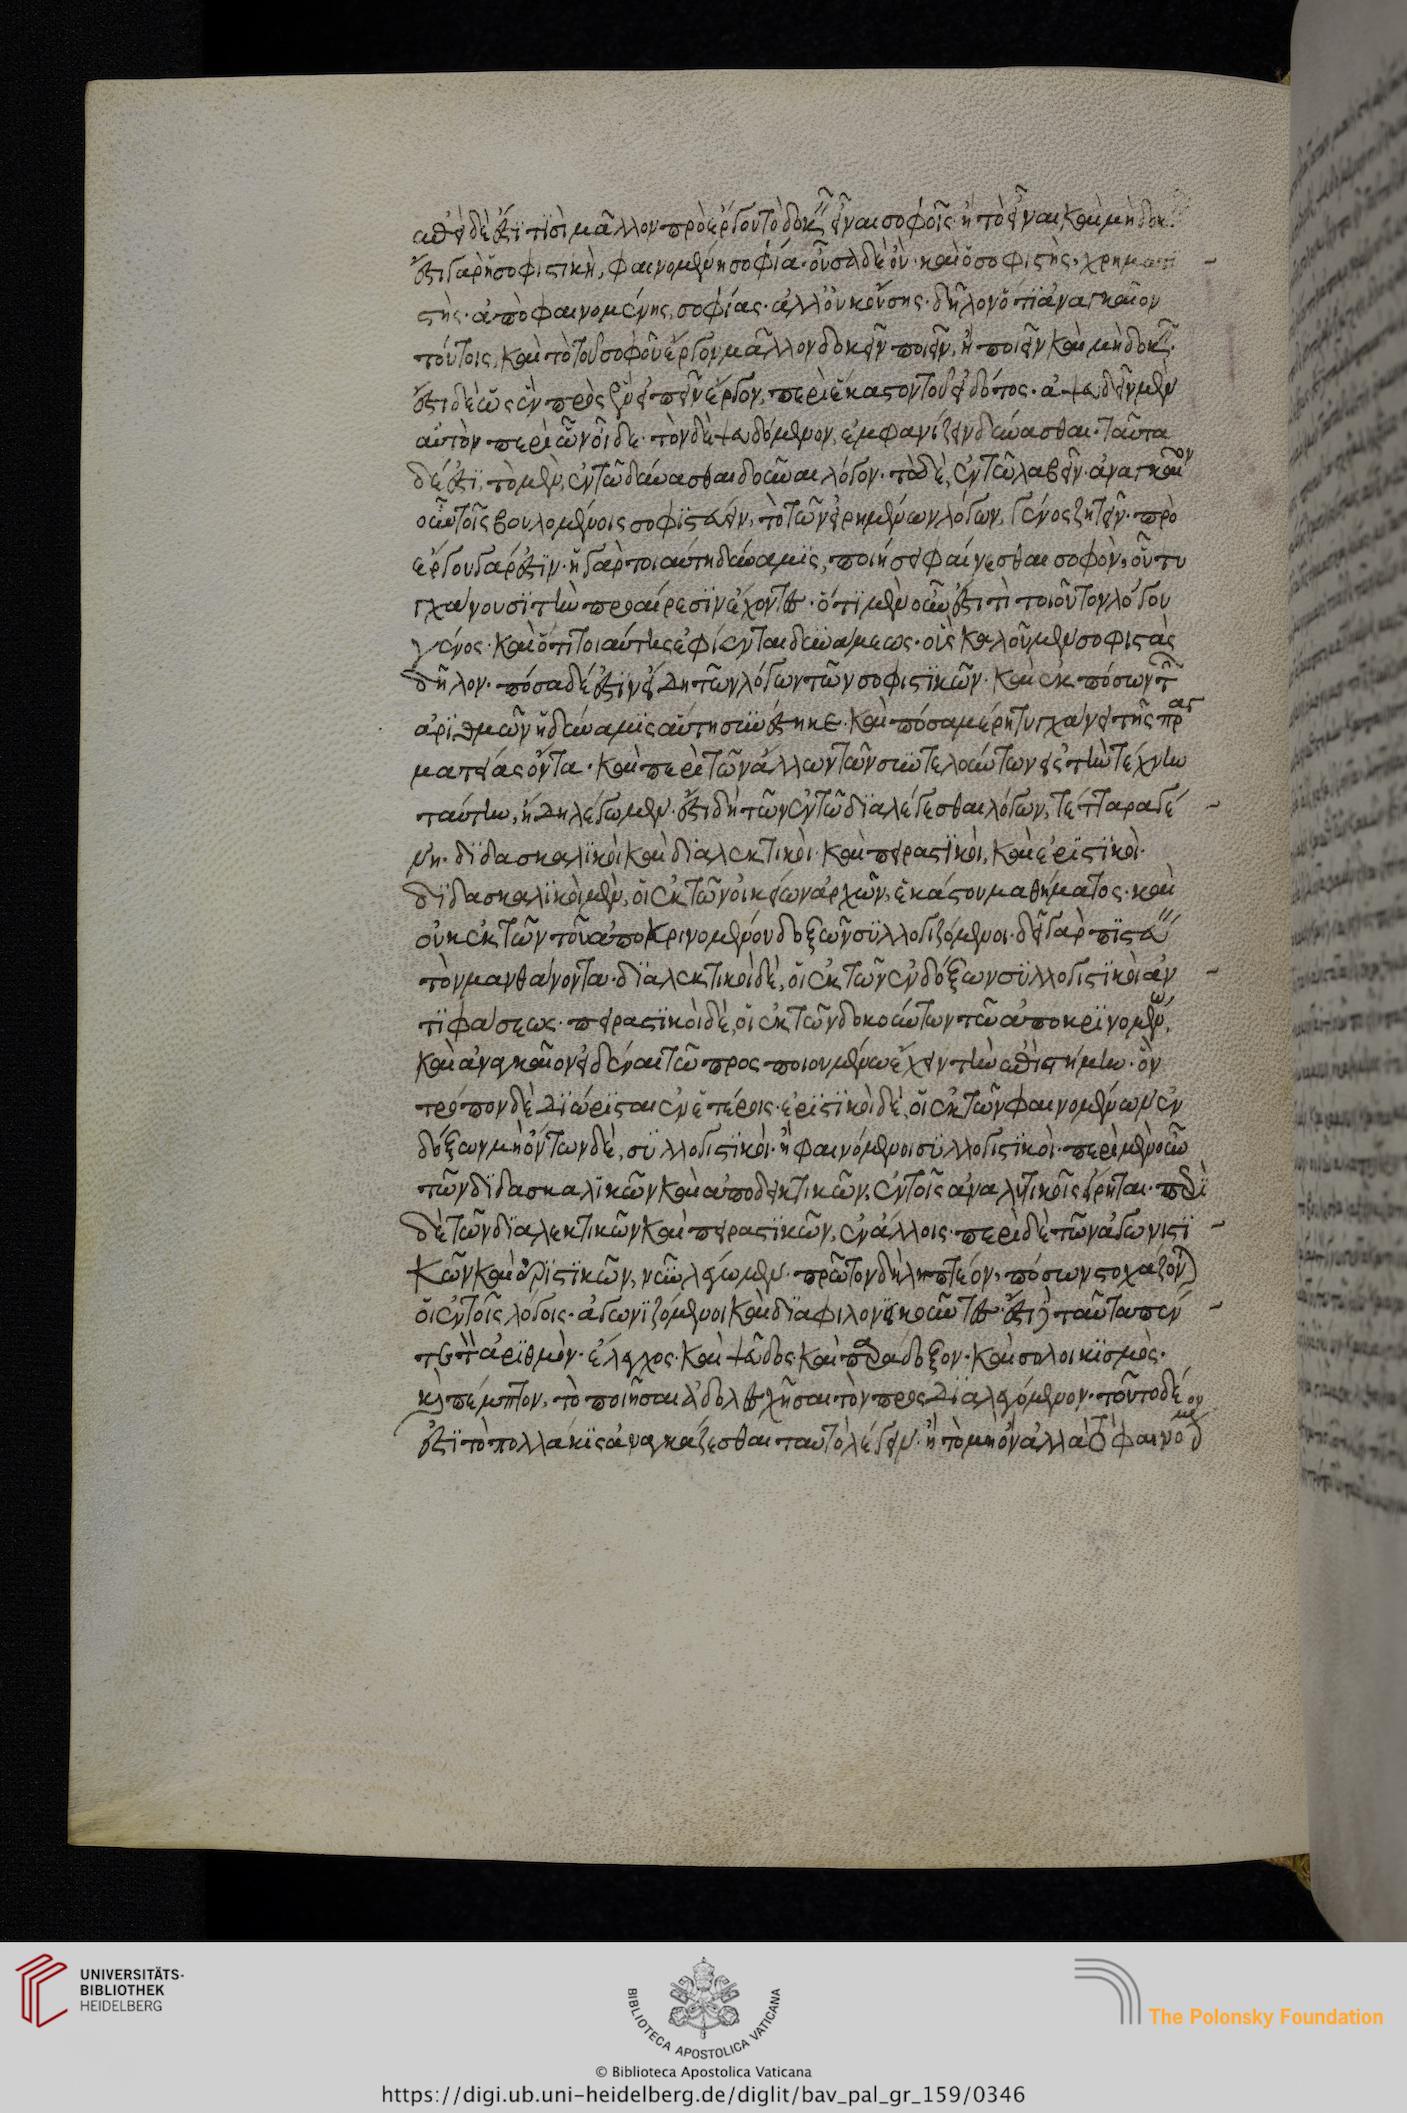 ἐπεὶ δέ ἐστί τισὶ μᾶλλον πρὸ ἔργου τὸ δοκεῖν εἶναι σοφοῖς· ἢ τὸ εἶναι καὶ μὴ δοκεῖν.
ἔστι γὰρ ἡ σοφιστικὴ, φαινομένη σοφία· οὖσα δὲ οὔ· καὶ ὁ σοφιστὴς, χρηματι
στὴς· ἀπὸ φαινομένης, σοφίας· ἀλλ' οὐκ οὔσης. δῆλον ὅτι ἀναγκαῖον
τούτοις, καὶ τὸ τοῦ σοφοῦ ἔργον, μᾶλλον δοκεῖν ποιεῖν, ἢ ποιεῖν καὶ μὴ δοκεῖν.
ἔστι δὲ ὡς ἓν πρὸς ἓν εἰπεῖν ἔργον, περὶ ἕκαστον τοῦ εἰδότος· ἀψευδεῖν μὲν
αὐτὸν περὶ ὧν οἶδε· τὸν δὲ ψευδόμενον, ἐμφανίζειν δύνασθαι· ταῦτα
δέ ἐστι, τὸ μὲν, ἐν τῶ δύνασθαι δοῦναι λόγον· τὸ δὲ, ἐν τῶ λαβεῖν· ἀναγκαῖον
οὖν τοῖς βουλομένοις σοφιστεύειν, τὸ τῶν εἰρημένων λόγων, γένος ζητεῖν· πρὸ
ἔργου γάρ ἐστιν· ἡ γὰρ τοιαύτη δύναμις, ποιήσει φαίνεσθαι σοφὸν, οὗ τυ
γχάνουσι τὴν προαίρεσιν ἔχοντες· ὅτι μὲν οὖν ἔστι τὶ τοιοῦτον λόγου
γένος· καὶ ὅτι τοιαύτης ἐφίενται δυνάμεως· οἳς καλοῦμεν σοφιστὰς
δῆλον· πόσα δέ ἐστιν εἴδη τῶν λόγων τῶν σοφιστικῶν· καὶ ἐκ πόσων τὸν
ἀριθμῶν ἡ δύναμις αὕτη συνέστηκε· καὶ πόσα μέρη τυγχάνει τῆς πρα
ματείας ὄντα· καὶ περὶ τῶν ἄλλων τῶν συντελούντων εἰς τὴν τέχνην
ταύτην, ἤδη λέγωμεν. ἔστι δὴ τῶν ἐν τῶ διαλέγεσθαι λόγων, τέτταρα γέ
νη· διδασκαλικοὶ καὶ διαλεκτικοὶ· καὶ πειραστικοὶ, καὶ ἐριστικοὶ.
διδασκαλικοὶ μὲν, οἱ ἐκ τῶν οἰκείων ἀρχῶν, ἑκάστου μαθήματος· καὶ
οὐκ ἐκ τῶν τοῦ ἀποκρινομένου δοξῶν συλλογιζόμενοι· δεῖ γὰρ πιστεύειν
τὸν μανθάνοντα· διαλεκτικοὶ δὲ, οἱ ἐκ τῶν ἐνδόξων συλλογιστικοὶ ἀν
τιφάσεως· πειραστικοὶ δὲ, οἱ ἐκ τῶν δοκούντων τῶ ἀποκρινομένω,
καὶ ἀναγκαῖον εἰδέναι τῶ προσποιουμένω ἔχειν τὴν ἐπιστήμην· ὃν
τρόπον δὲ διώρισται ἐν ἑτέροις· ἐριστικοὶ δὲ, οἱ ἐκ τῶν φαινομένων ἐν
δόξων μὴ ὄντων δὲ, συλλογιστικοὶ· ἢ φαινόμενοι συλλογιστικοὶ· περὶ μὲν οὖν
τῶν διδασκαλικῶν καὶ ἀποδεικτικῶν, ἐν τοῖς ἀναλυτικοῖς εἴρηται· περὶ
δὲ τῶν διαλεκτικῶν καὶ πειραστικῶν, ἐν ἄλλοις· περὶ δὲ τῶν ἀγωνιστι
κῶν καὶ ἐριστικῶν, νῦν λέγωμεν· πρῶτον δὴ ληπτέον, πόσων στοχάζονται
οἱ ἐν τοῖς λόγοις· ἀγωνιζόμενοι καὶ διαφιλονεικοῦντες· ἔστι δὲ ταῦτα πέν
τε τὸν ἀριθμὸν· ἔλεγχος· καὶ ψεῦδος· καὶ παράδοξον· καὶ σολοικισμὸς·
καὶ πέμπτον, τὸ ποιῆσαι ἀδολεσχῆσαι τὸν προσδιαλεγόμενον· τοῦτο δέ
ἐστι τὸ πολλάκις ἀναγκάζεσθαι ταυτὸ λέγειν· ἢ τὸ μὴ ὂν ἀλλὰ τὸ φαινόμενον
UNIVERSITÄTS-
BIBLIOTHEK
HEIDELBERG
BIBLIOTECA APOSTOLICA VATICANA
The Polonsky Foundation
© Biblioteca Apostolica Vaticana
https://digi.ub.uni-heidelberg.de/diglit/bav_pal_gr_159/0346